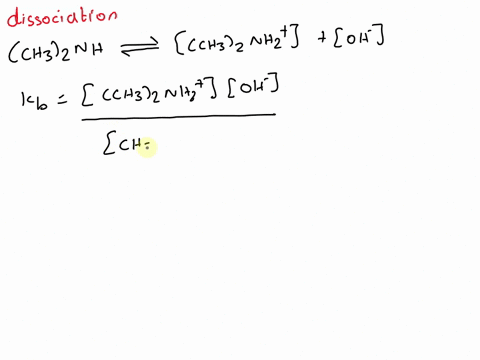 dissociation
(CH3)2NH ⇌ [(CH3)2NH2+] + [OH-]
Kb = [(CH3)2NH2+][OH-]
[CH